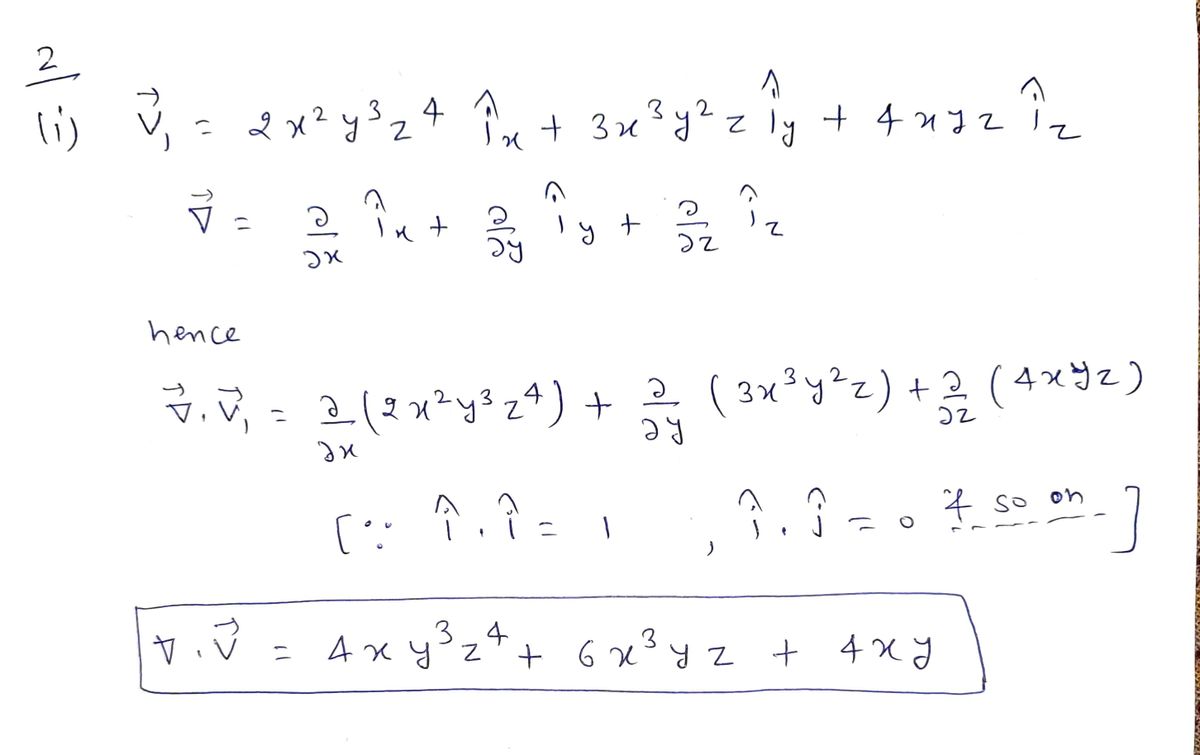 2
(i) V⃗₁ = 2x²y³z⁴ îₓ + 3x³y²z î_y + 4xyz î_z
∇⃗ = ∂/∂x îₓ + ∂/∂y î_y + ∂/∂z î_z
hence
∇⃗.V⃗₁ = ∂/∂x (2x²y³z⁴) + ∂/∂y (3x³y²z) + ∂/∂z (4xyz)
[∵ î.î = 1 , î.ĵ = 0 & so on]
∇.V⃗ = 4xy³z⁴ + 6x³yz + 4xy